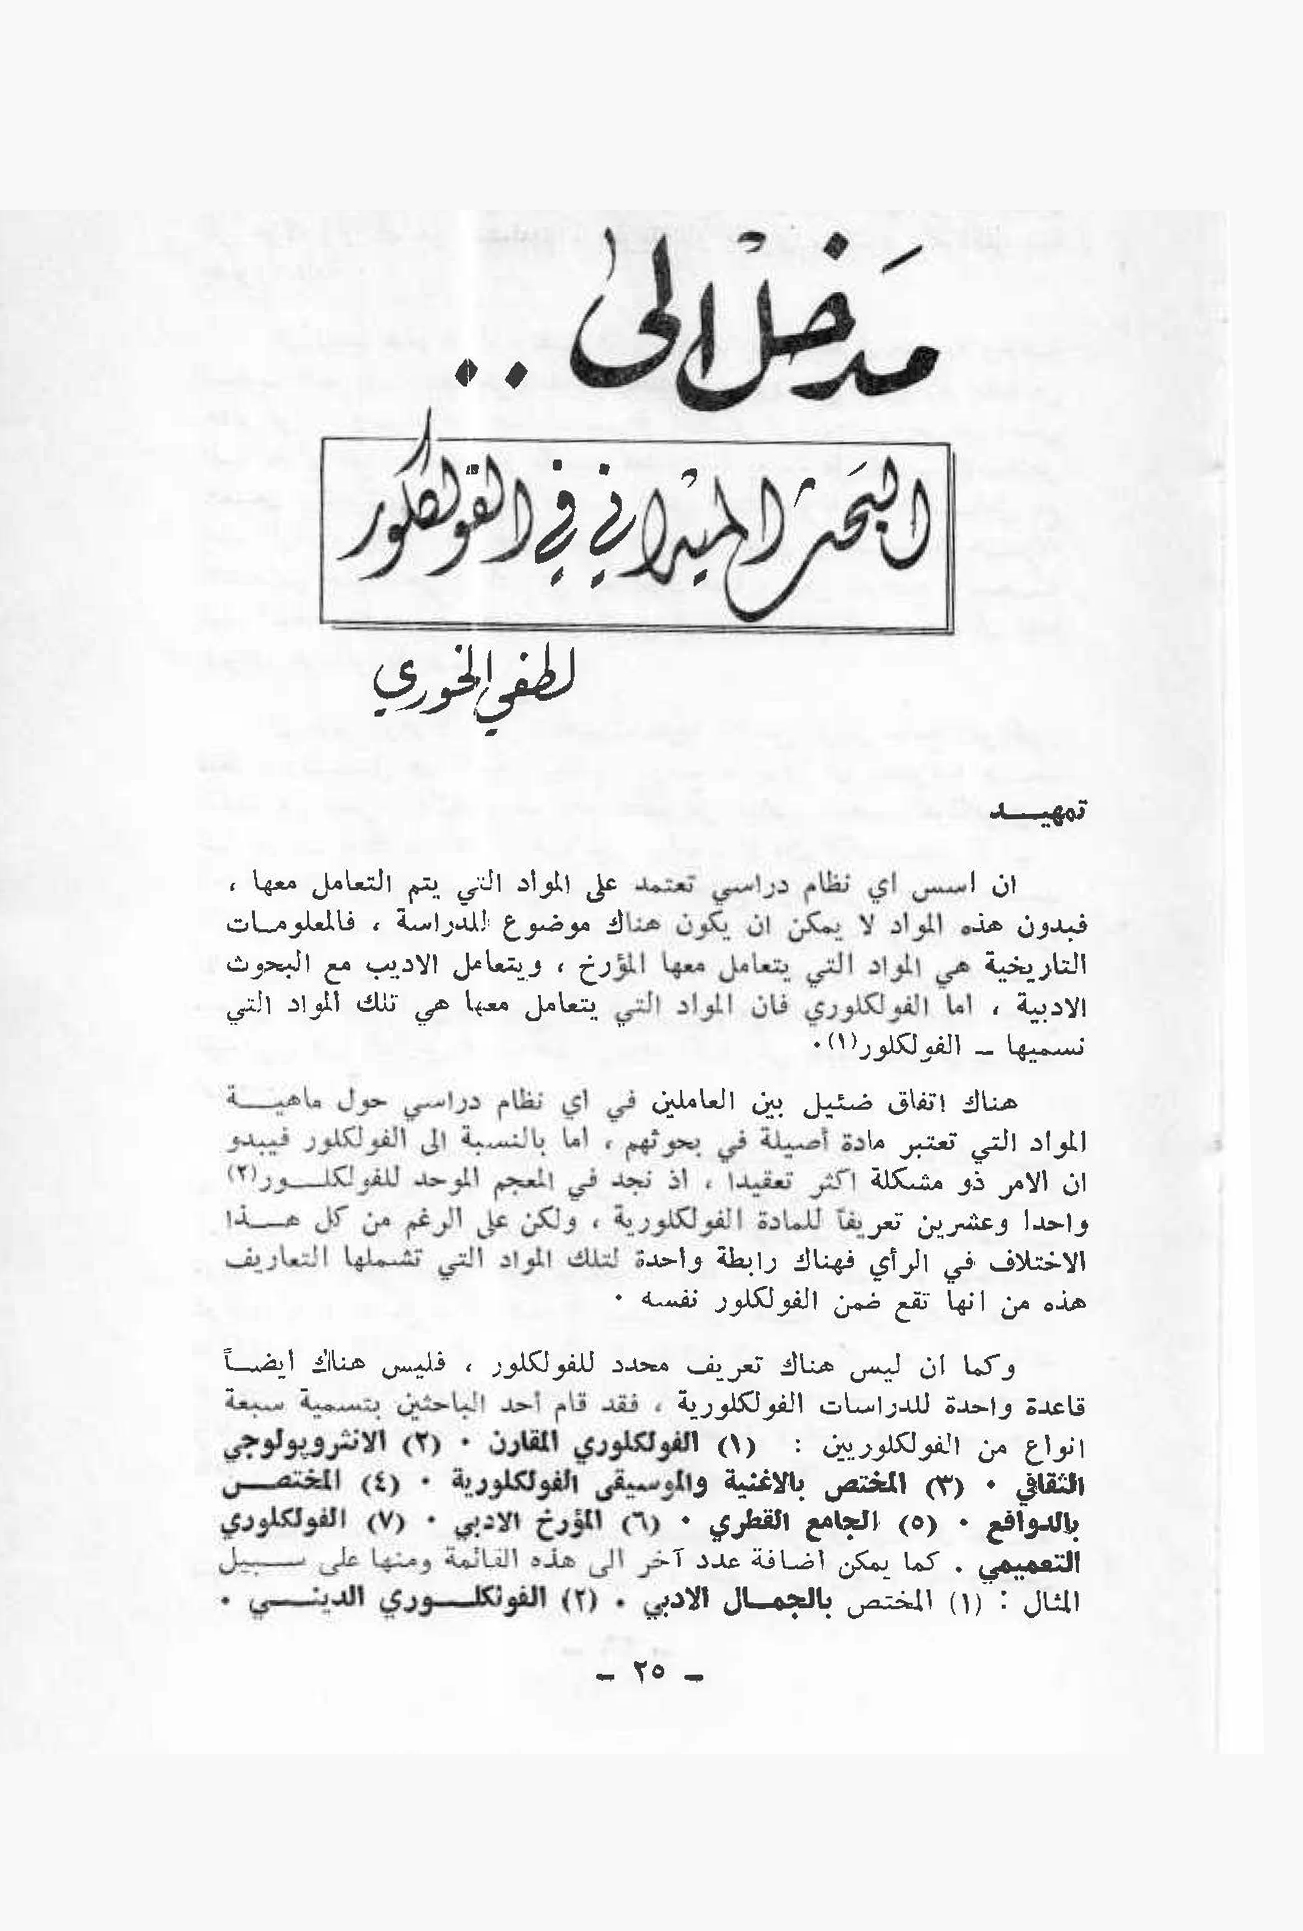 مدخل الى ..
البحث الميداني في الفولكلور
لطفي الخوري
تمهيـــد
ان اسس اي نظام دراسي تعتمد على المواد التي يتم التعامل معها ،
فبدون هذه المواد لا يمكن ان يكون هناك موضوع للدراسة ، فالمعلومـات
التاريخية هي المواد التي يتعامل معها المؤرخ ، ويتعامل الاديب مع البحوث
الادبية ، اما الفولكلوري فان المواد التي يتعامل معها هي تلك المواد التي
نسميها ــ الفولكلور(١)٠
هناك اتفاق ضئيل بين العاملين في اي نظام دراسي حول ماهيـــة
المواد التي تعتبر مادة أصيلة في بحوثهم ، اما بالنسبة الى الفولكلور فيبدو
ان الامر ذو مشكلة اكثر تعقيدا ، اذ نجد في المعجم الموحد للفولكلـــور(٢)
واحدا وعشرين تعريفاً للمادة الفولكلورية ، ولكن على الرغم من كل هـــذا
الاختلاف في الرأي فهناك رابطة واحدة لتلك المواد التي تشملها التعاريف
هذه من انها تقع ضمن الفولكلور نفسه ٠
وكما ان ليس هناك تعريف محدد للفولكلور ، فليس هناك ايضــاً
قاعدة واحدة للدراسات الفولكلورية ، فقد قام احد الباحثين بتسمية سبعة
انواع من الفولكلوريين : (١) الفولكلوري المقارن ٠ (٢) الانثروپولوجي
الثقافي ٠ (٣) المختص بالاغنية والموسيقى الفولكلورية ٠ (٤) المختصــ
بالدوافع ٠ (٥) الجامع القطري ٠ (٦) المؤرخ الادبي ٠ (٧) الفولكلوري
التعميمي . كما يمكن اضافة عدد آخر الى هذه القائمة ومنها على ســـبيل
المثال : (١) المختص بالجمــال الادبي ٠ (٢) الفولكلـــوري الدينـــي ٠
ــ ٢٥ ــ